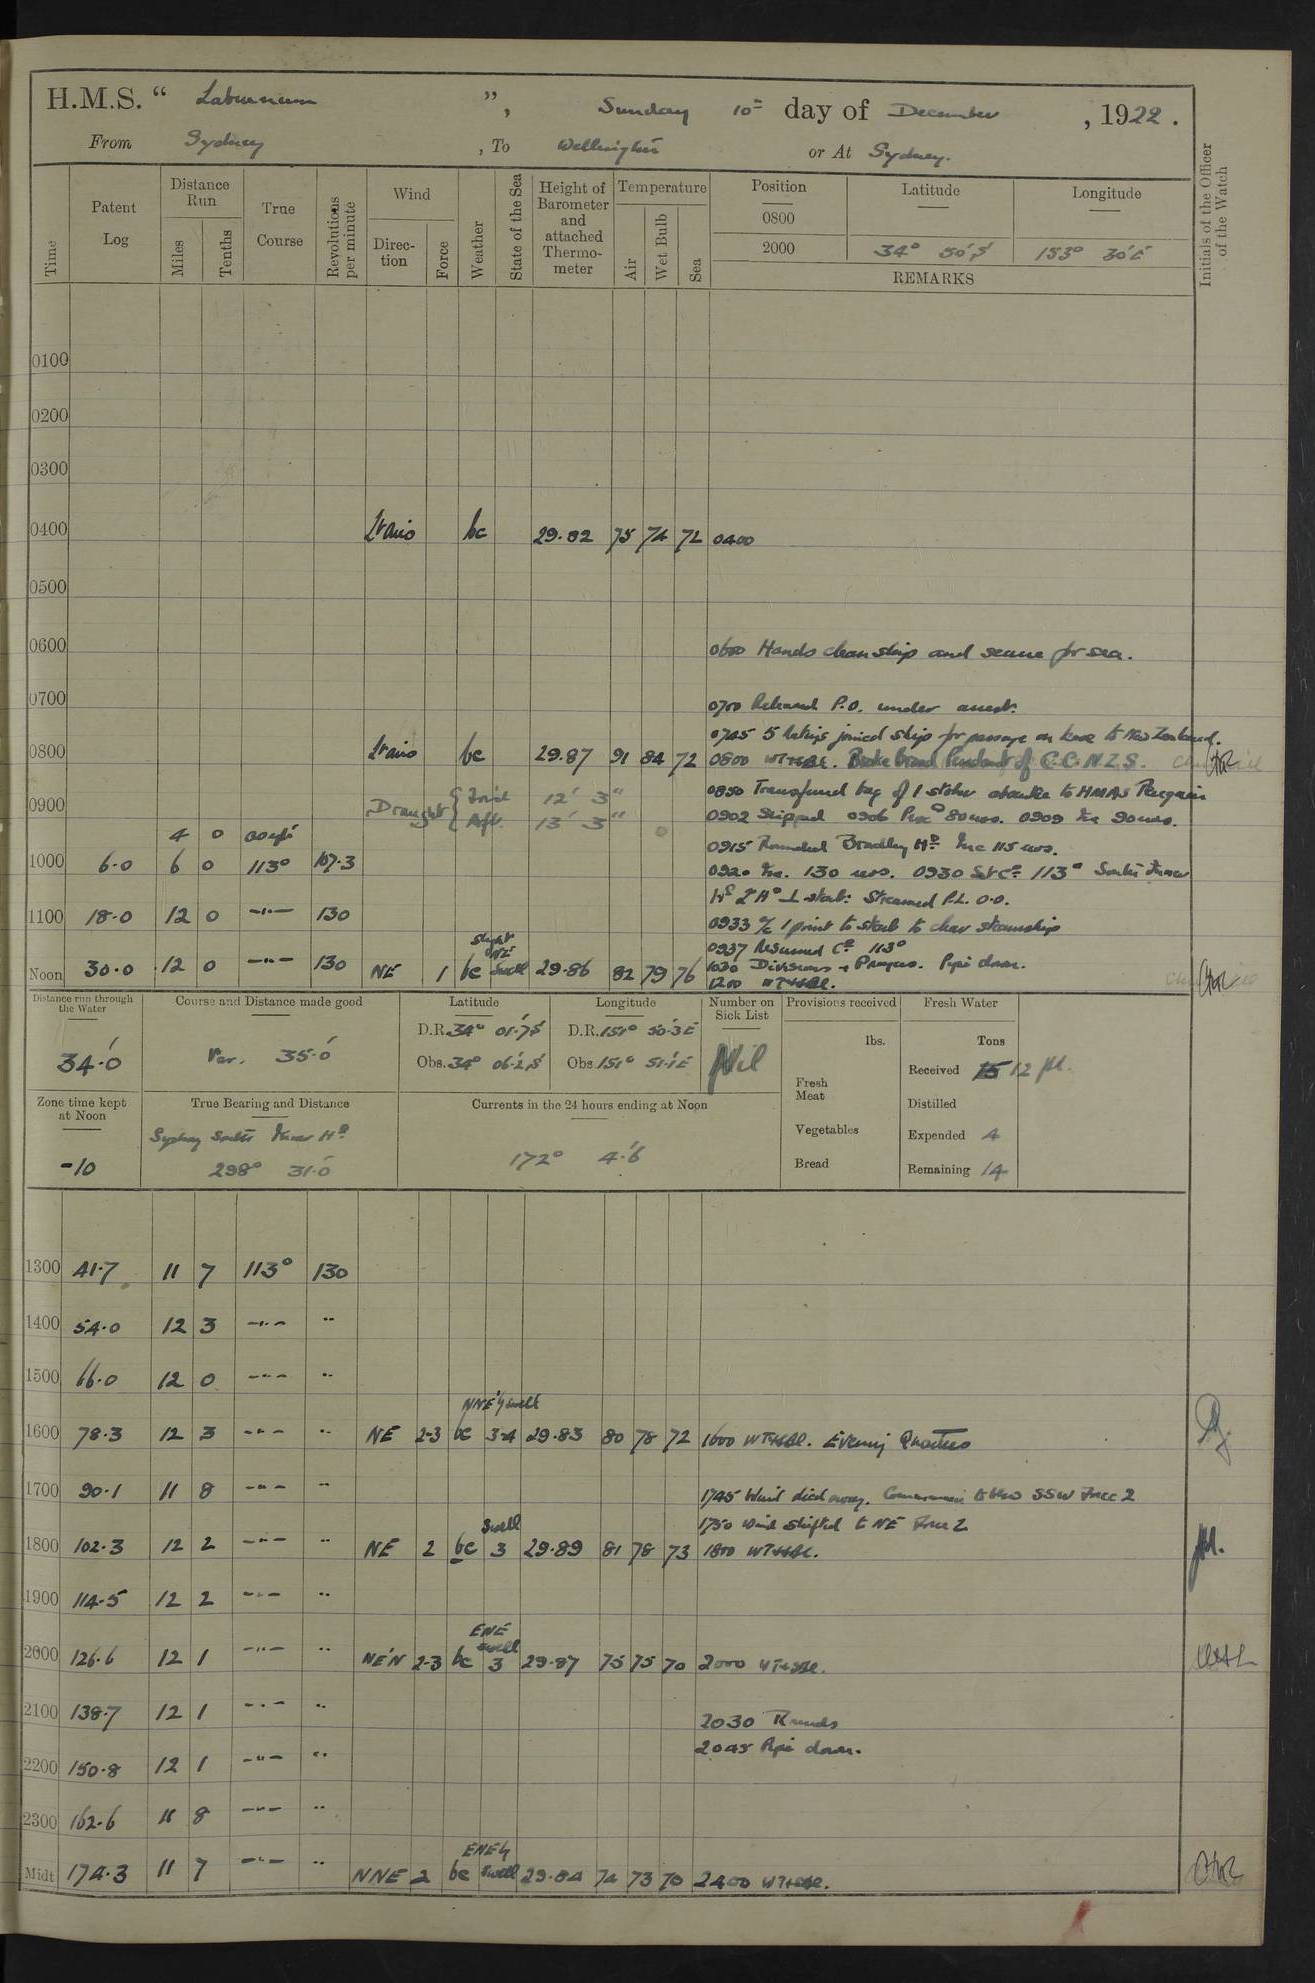 H.M.S. “ Laburnum ”, Sunday 10th day of December, 1922.
From Sydney, To Wellington or At Sydney.
Time
Patent Log
Distance Run
Miles
Tenths
True Course
Revolutions per minute
Wind
Direc-tion
Force
Weather
State of the Sea
Height of Barometer and attached Thermo-meter
Temperature
Air
Wet Bulb
Sea
Position
Latitude
Longitude
0800
2000 34° 50'S 153° 30'E
REMARKS
Initials of the Officer of the Watch
0100
0200
0300
0400 Lt airs bc 29.82 75 74 72 0400
0500
0600 0600 Hands clean ship and secure for sea.
0700 0700 Released P.O. under arrest.
0745 5 ratings joined ship for passage on leave to New Zealand.
0800 Lt airs bc 29.87 91 84 72 0800 WT&SBL. Broke Broad Pendant of C.C.N.Z.S.
0850 Transferred bag of 1 stoker absentee to HMAS Penguin
0900 Draught { For'd 12' 3"
Aft. 13' 3"
0902 Slipped 0906 Proc'd 80 revs. 0909 Inc 90 revs.
4 0 comp's
0915 Rounded Bradley Hd. Inc 115 revs.
1000 6.0 6 0 113° 107.3 0920 Inc. 130 revs. 0930 Set Co. 113° South Inner
Hd & Ho ⊥ starb: Streamed P.L. 0.0.
1100 18.0 12 0 -"- 130 0933 a/c 1 point to starb to clear steamship
0937 Resumed Co. 113°
1030 Divisions & Prayers. Pipe down.
Noon 30.0 12 0 -"- 130 NE 1 bc slight NE'ly Swell 29.86 82 79 76 1200 WT&SBL.
Distance run through the Water
34.0
Course and Distance made good
Var. 35.0
Latitude
D.R. 34° 01.7'S
Obs. 34° 06.2'S
Longitude
D.R. 151° 50.3'E
Obs. 151° 51.1'E
Number on Sick List
Nil
Provisions received
lbs.
Fresh Meat
Vegetables
Bread
Fresh Water
Tons
Received 15 12
Distilled
Expended 4
Remaining 14
Zone time kept at Noon
-10
True Bearing and Distance
Sydney South Inner Hd
298° 31.0
Currents in the 24 hours ending at Noon
172° 4.6
1300 41.7 11 7 113° 130
1400 54.0 12 3 -"- "
1500 66.0 12 0 -"- "
1600 78.3 12 3 -"- " NE 2-3 bc NNE'ly swell 3-4 29.83 80 78 72 1600 WT&SBL. Evening Quarters
1700 90.1 11 8 -"- " 1745 Wind died away. Commenced to blow SSW Force 2
1750 Wind shifted to NE Force 2
1800 102.3 12 2 -"- " NE 2 bc Swell 3 29.89 81 78 73 1800 WT&SBL.
1900 114.5 12 2 -"- "
2000 126.6 12 1 -"- " NE'N 2-3 bc ENE swell 3 29.87 75 75 70 2000 WT&SBL.
2100 138.7 12 1 -"- " 2030 Rounds
2045 Pipe down.
2200 150.8 12 1 -"- "
2300 162.6 11 8 -"- "
Midt 174.3 11 7 -"- " NNE 2 bc ENE'ly Swell 29.84 74 73 70 2400 WT&SBL.